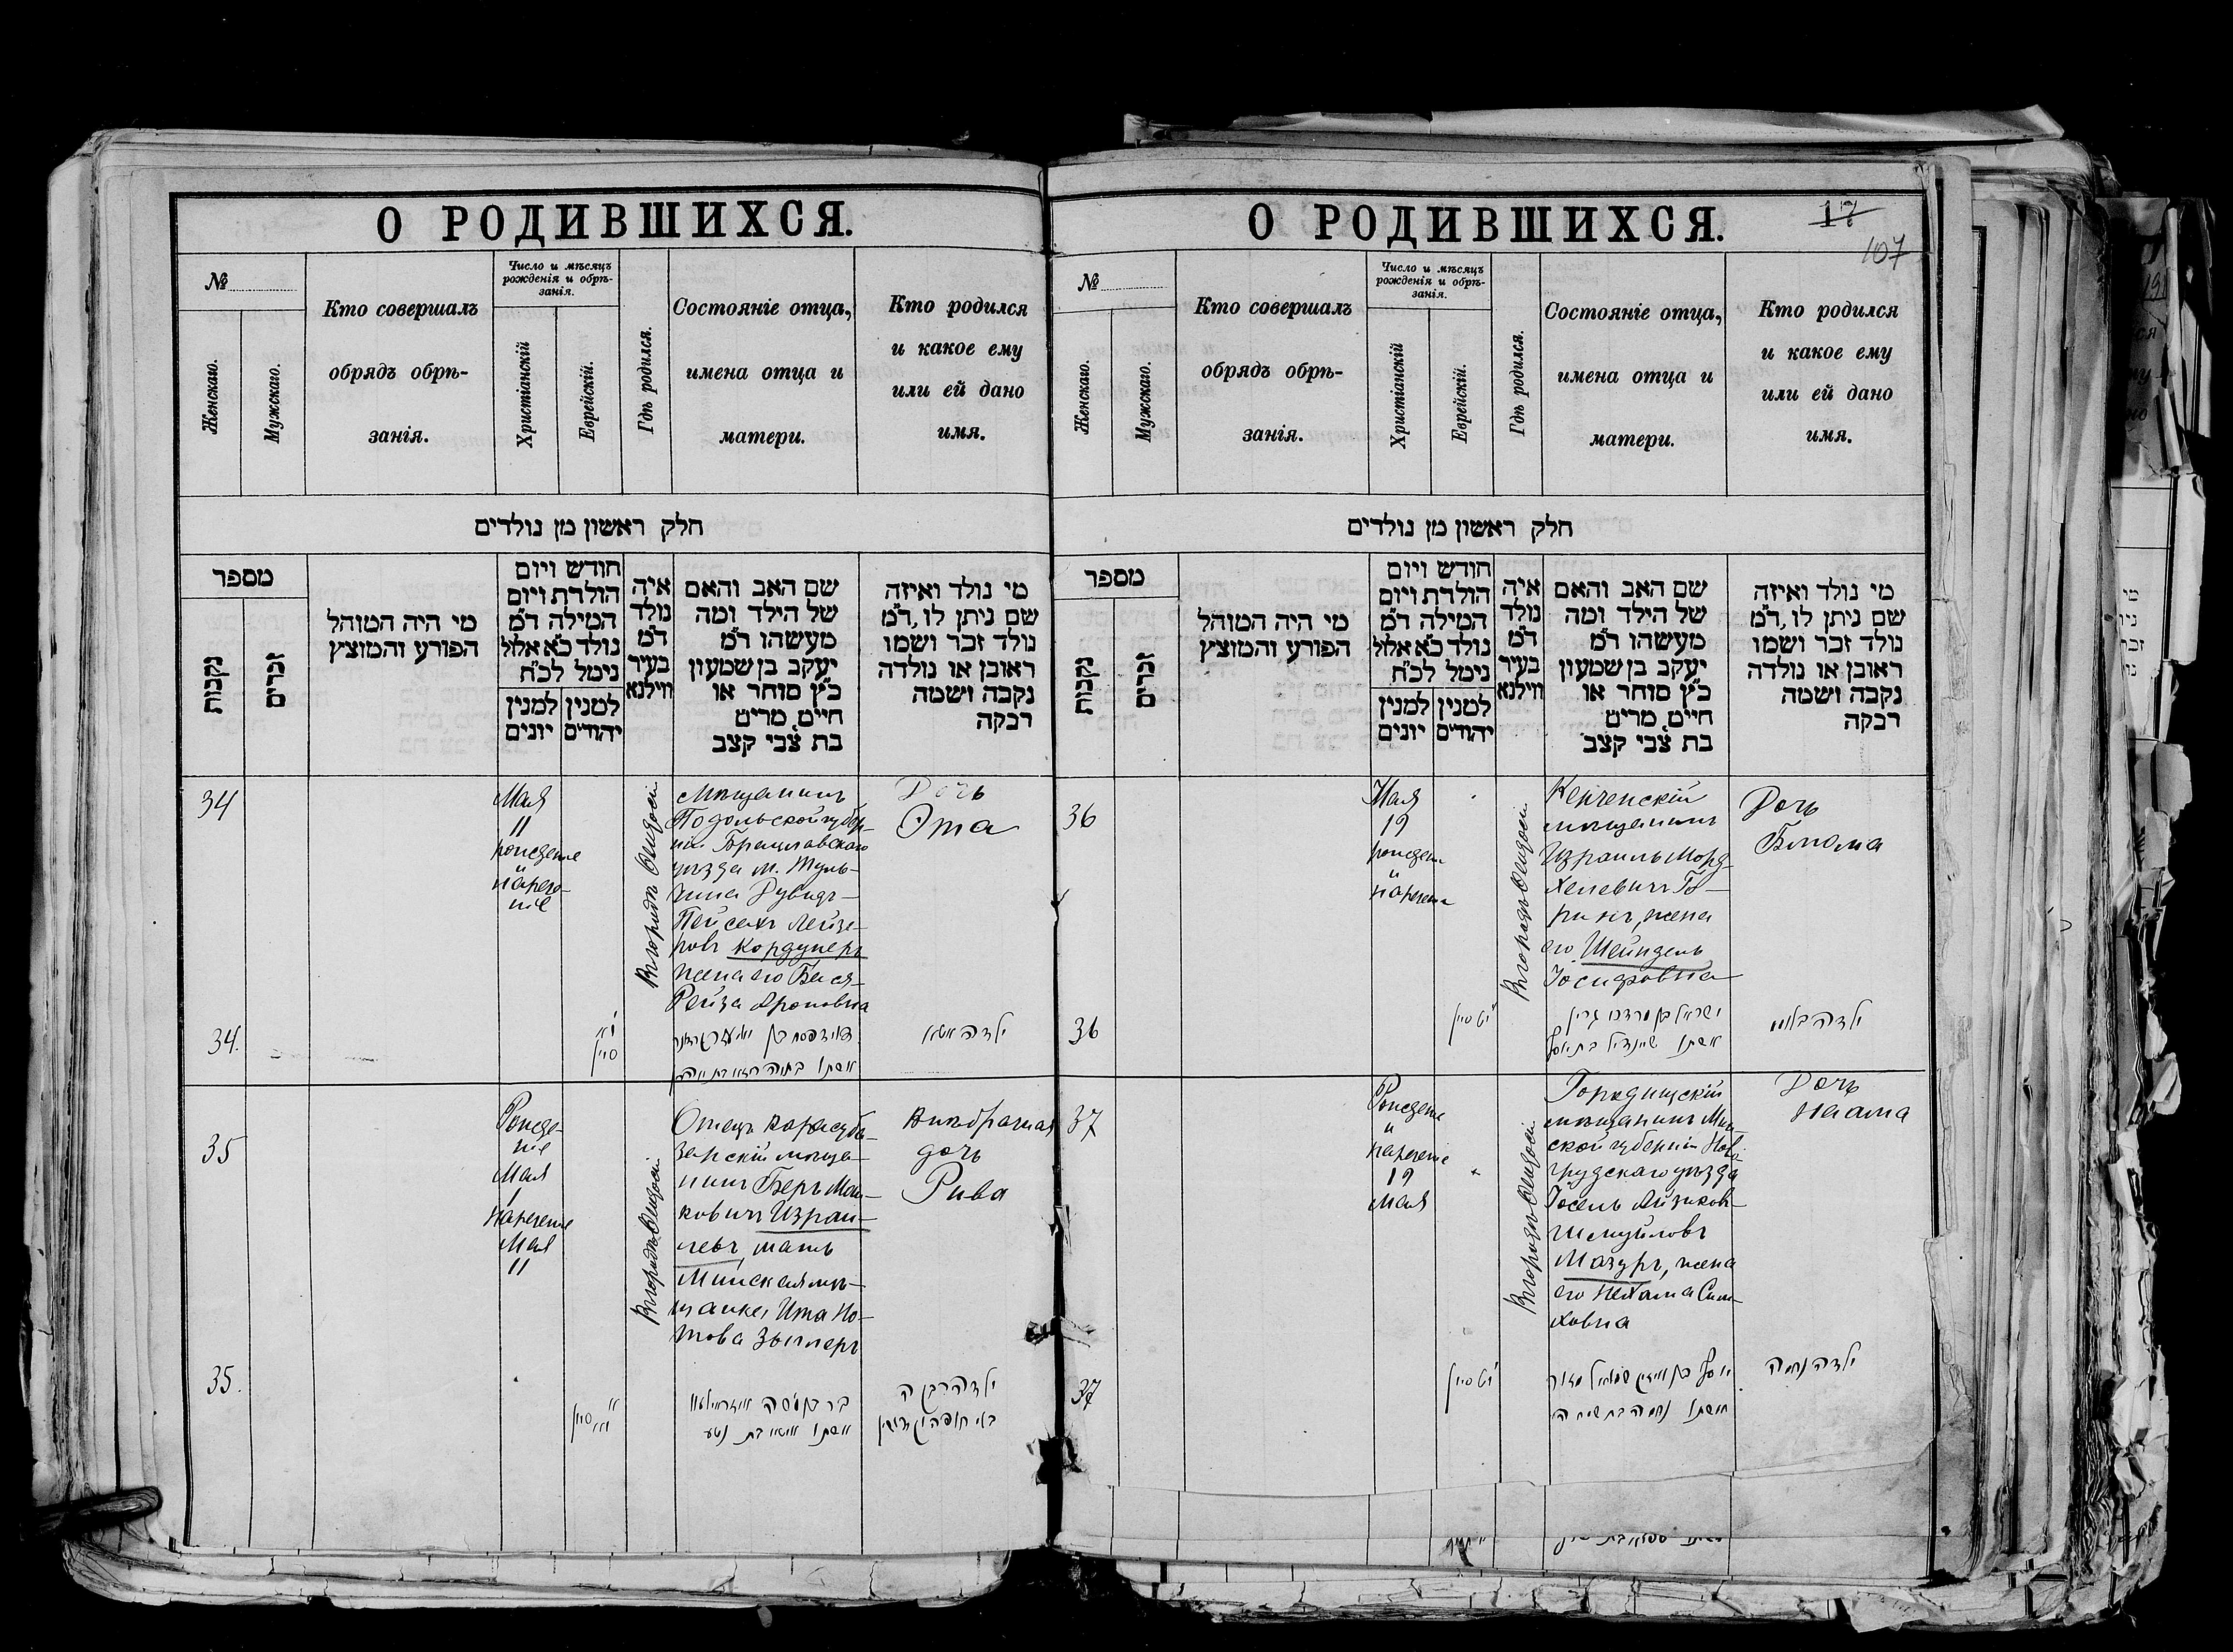 О РОДИВШИХСЯ.
№
Женскаго.
Мужскаго.
Кто совершалъ
обрядъ обрѣ-
занія.
Число и мѣсяцъ
рожденія и обрѣ-
занія.
Христіанскій
Еврейскій.
Гдѣ родился.
Состояніе отца,
имена отца и
матери.
Кто родился
и какое ему
или ей дано
имя.
חלק ראשון מן נולדים
מספר
נקבות
זכרים
מי היה המוהל
הפורע והמוצץ
חודש ויום
הולדת ויום
המילה ד"מ
נולד כ"א אלול
נימל לכ"ח
למנין
יונים
למנין
יהודים
איה
נולד
ד"מ
בעיר
ווילנא
שם האב והאם
של הילד ומה
מעשהו ד"מ
יעקב בן שמעון
כ"ץ סוחר או
חיים, מרים
בת צבי קצב
מי נולד ואיזה
שם ניתן לו, ד"מ
נולד זכר ושמו
ראובן או נולדה
נקבה ושמה
רבקה
34
Мая
11
рожденіе
и
нарече-
ніе
Въ городѣ Ѳеодосіи
Мѣщанинъ
Подольской губер-
ніи Брацлавскаго
уѣзда м. Туль-
чина Дувидъ-
Пейсахъ Лейзе-
ровъ Кордунеръ
жена его Бася-
Рейза Ароновна
Дочь
Эта
34.
י"א
סיון
ילדה אטא
35
Рожде-
ніе
Мая
1
Нареченіе
Мая
11
Въ городѣ Ѳеодосіи
Отецъ Карасуба-
зарскій мѣща-
нинъ Беръ Мош-
ковичъ Израи-
левъ, мать
Минская мѣ-
щанка Ита Но-
това Зыллеръ
Внѣбрачная
дочь
Рива
35.
סיון
אשתו איטא בת נטע
ילדה רבקה
О РОДИВШИХСЯ.
17
107
№
Женскаго.
Мужскаго.
Кто совершалъ
обрядъ обрѣ-
занія.
Число и мѣсяцъ
рожденія и обрѣ-
занія.
Христіанскій
Еврейскій.
Гдѣ родился.
Состояніе отца,
имена отца и
матери.
Кто родился
и какое ему
или ей дано
имя.
חלק ראשון מן נולדים
מספר
נקבות
זכרים
מי היה המוהל
הפורע והמוצץ
חודש ויום
הולדת ויום
המילה ד"מ
נולד כ"א אלול
נימל לכ"ח
למנין
יונים
למנין
יהודים
איה
נולד
ד"מ
בעיר
ווילנא
שם האב והאם
של הילד ומה
מעשהו ד"מ
יעקב בן שמעון
כ"ץ סוחר או
חיים, מרים
בת צבי קצב
מי נולד ואיזה
שם ניתן לו, ד"מ
נולד זכר ושמו
ראובן או נולדה
נקבה ושמה
רבקה
36
Мая
19
рожденіе
и
нареченіе
Въ городѣ Ѳеодосіи
Керченскій
мѣщанинъ
Израиль Морд-
хелевичъ Гринъ, жена
его Шейндель
Іосифовна
Дочь
Блюма
36
י"ט סיון
ישראל בן מרדכי גרין
אשתו שיינדיל בת יוסף
ילדה בלומא
37
Рожденіе
и
нареченіе
19
Мая
Въ городѣ Ѳеодосіи
Городищскій
мѣщанинъ Мин-
ской губерніи Нов-
грудскаго уѣзда
Іосель Айзиковъ-
Шмуйловъ
Мазуръ, жена
его Нехама Сим-
ховна
Дочь
Наама
37
י"ט סיון
יוסף בן אייזיק שמואל מזור
אשתו נחמה בת שמחה
ילדה נעמה